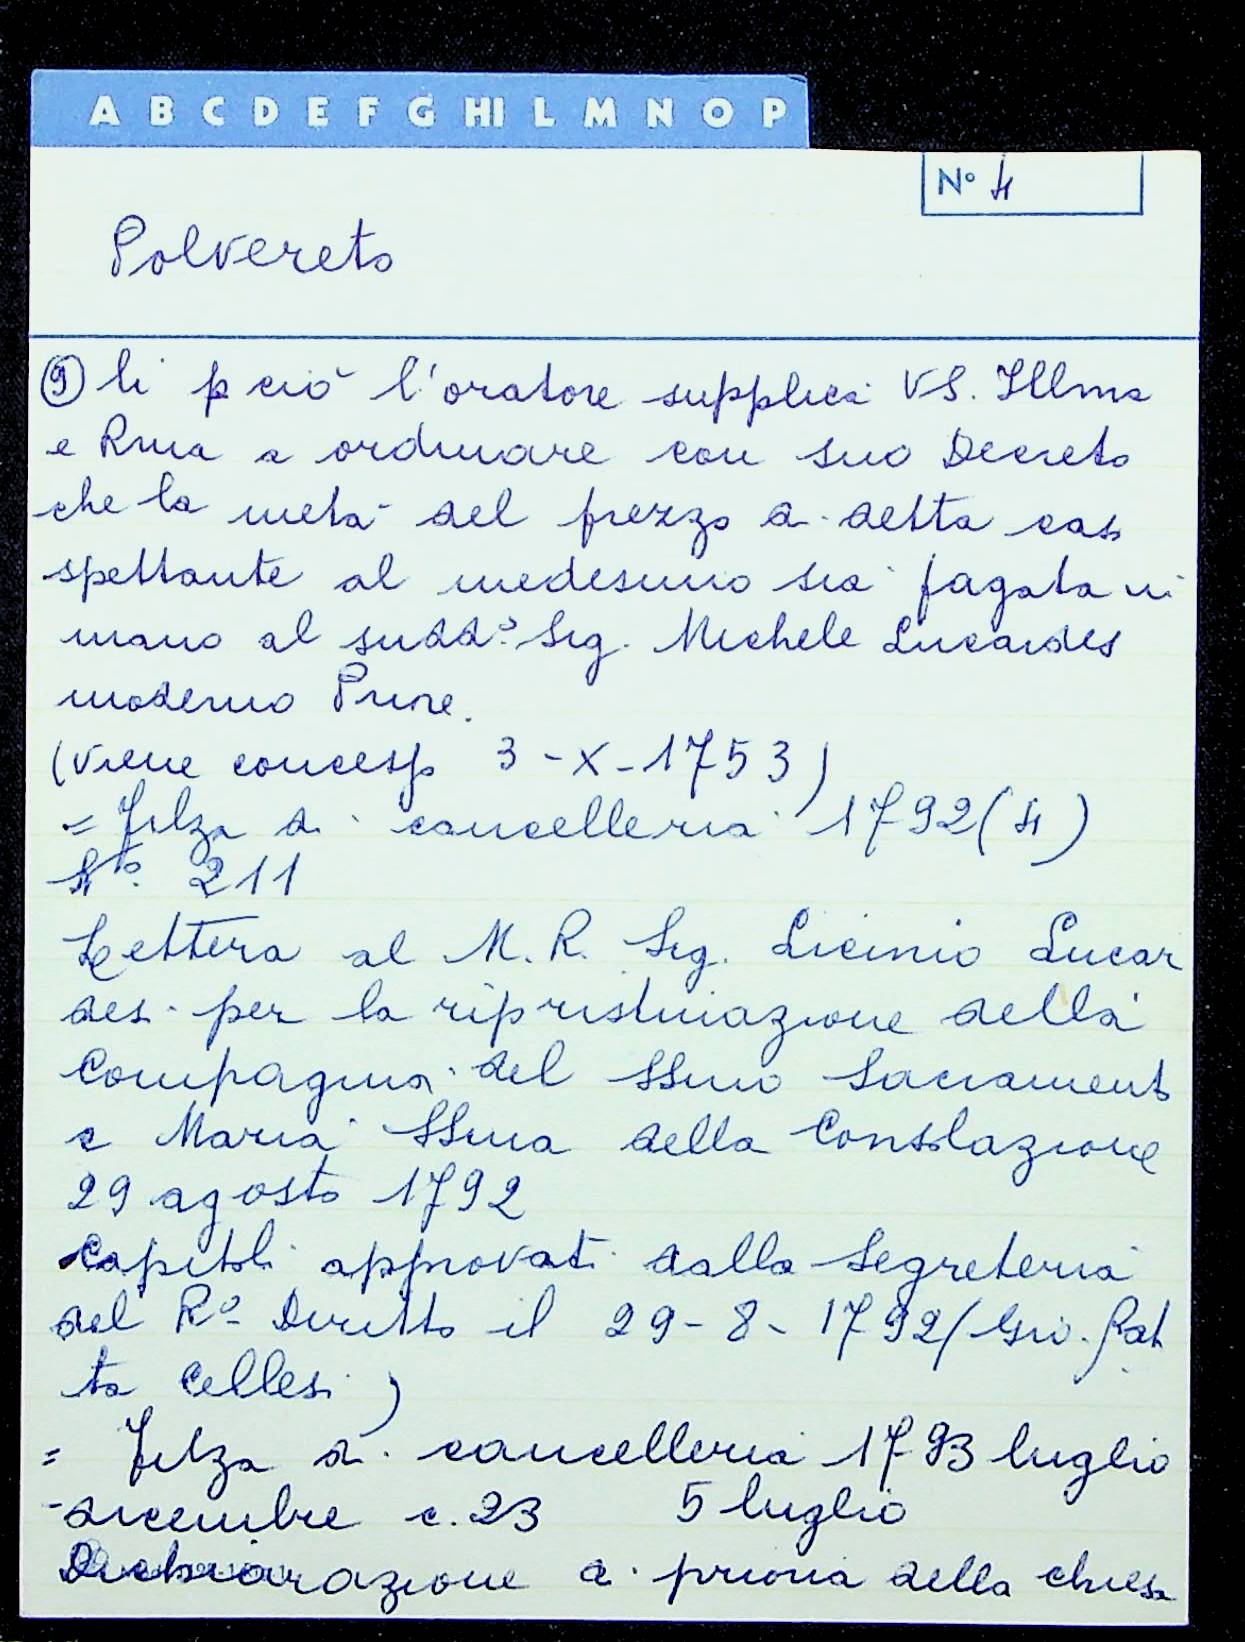 A B C D E F G HI L M N O P
N° 4
Polvereto
⑨ li p ciò l'oratore supplica VS. Illma
e Rma a ordinare con suo Decreto
che la metà del prezzo di detta casa
spettante al medesimo sia pagata in
mano al sudd.° Sig. Michele Lucardesi
moderno Priore.
(viene concesso 3-X-1753)
= Filza di cancelleria 1792 (4)
N°. 211
Lettera al M.R. Sig. Licinio Lucar
desi per la ripristinazione della
Compagnia del SSmo Sacramento
e Maria SSma della Consolazione
29 agosto 1792
Capitoli approvati dalla Segreteria
del R° Diritto il 29-8-1792 (Gio. Bat
ta Cellesi)
= Filza di cancelleria 1793 luglio
-dicembre c. 23 5 luglio
Dichiarazione di prioria della chiesa